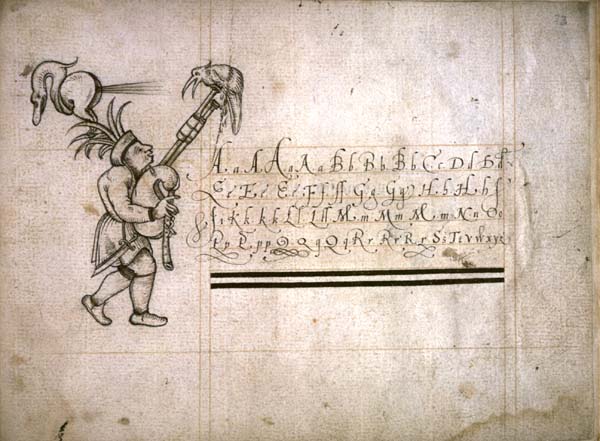 A. a. A. A a A a B b B b B b C c D d D d.
E e E e E e F f ff G g G g H. h H. h f
k. k k L l L ll M. m M m M. m N n O o
P p P. p p Q Q q Q q R r R r R r S s T t v w x y z